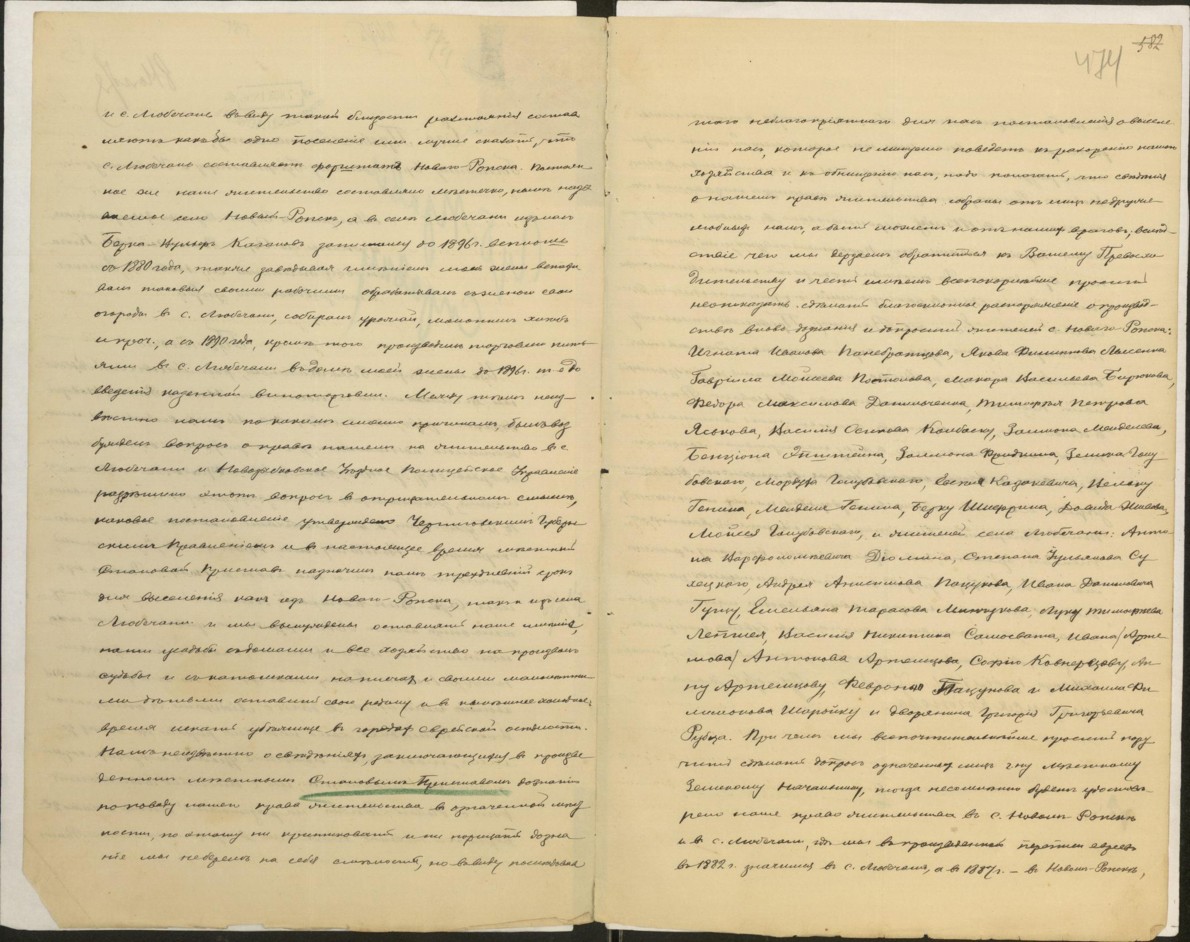 и с. Любечань ввиду такой близости разстоянія состав
ляютъ какъ бы одно поселеніе или лучше сказать, что
с. Любечань составляетъ форштатъ Новаго-Ропска. Постоян
ное же наше жительство составляло мѣстечко, нынѣ назы
ваемое село Новый-Ропскъ, а въ селѣ Любечани изъ насъ
Берка-Нухимъ Кагановъ записанъ до 1896 г.
до 1880 года, также завѣдывая имѣніемъ моей жены
валъ таковыя своими рабочими обрабатывалъ сѣменами свои
огороды въ с. Любечани, собиралъ урожай, молотилъ хлѣбъ
и проч., а съ 1890 года, кромѣ того производилъ торговлю питъ
ями въ с. Любечани въ домѣ моей жены до 1896 г. т. е. до
введенія казенной виноторговли. Между тѣмъ неиз-
вѣстно намъ по какимъ именно причинамъ, былъ воз
бужденъ вопросъ о правѣ нашемъ на жительство въ с.
Любечани и Новозыбковское Уѣздное Полицейское Управленіе
разрѣшило этотъ вопросъ въ отрицательномъ смыслѣ,
каковое постановленіе утверждено Черниговскимъ Губерн
скимъ Правленіемъ и въ настоящее время мѣстный
Становой Приставъ назначилъ намъ трехдневный срокъ
для выселенія какъ изъ Новаго-Ропска, такъ и изъ села
Любечани и мы вынуждены оставлять наше имѣніе,
наши усадьбы съ домами и все хозяйство на произволъ
судьбы и съ своими малолѣтни
ми дѣтьми оставить свою родину и в настоящее холодное
время искать убѣжище въ городахъ Еврейской осѣдлости.
Намъ неизвѣстно о свѣдѣніяхъ, заключающихся въ произве
денномъ мѣстнымъ Становымъ Приставомъ дознаніи
по поводу нашего права жительства въ означенной мѣст
ности, по этому ни критиковать и ни порицать дозна
ніе мы не беремъ на себя смѣлости, но ввиду
такого неблагопріятнаго для насъ постановленія о выселе
ніи насъ, которое неминуемо поведетъ къ разоренію нашего
хозяйства и къ обнищанію насъ, надо полагать, что свѣдѣнія
о нашемъ правѣ жительства собраны отъ лицъ недруже-
любивыхъ намъ, а быть можетъ и отъ нашихъ враговъ, вслѣд-
ствіе чего мы дерзаемъ обратиться къ Вашему Превосхо
дительству и честь имѣемъ всепокорнѣйше просить
не отказать сдѣлать благосклонное распоряженіе о производ-
ствѣ вновь дознанія и допросить жителей с. Новаго-Ропска:
Игната Иванова Панебратцова, Якова Филиппова Лысенка
Гавріила Моисеева Постолова, Макара Васильева Бирюкова,
Федора Максимова Данильченка, Тимофея Петрова
Яськова, Василія Осипова Ковбасу, Залмона Менделева,
Бенціона Эпштейна, Залмона Фридкина, Зелика Голу
бовскаго, Мордуха Голубовскаго, Евсея Казакевича, Цемаху
Генина, Менделя Генина, Берку Шифрина, Давида
Моисея Голубовскаго, и жителей села Любечани: Анто
на Варфоломеевича Дюмина, Степана Су
лецкаго, Андрея Анисимова Пацукова, Ивана Даниловича
Гузку, Емельяна Тарасова Мипукова, Луку Тимофеева
Василія Никитина Самосвата, Ивана /Арте
мова/ Антонова Артемцова, Софію Ковнерцову, Ан
ну Артемцову, Февронію Пацукова и Михаила Фи
липпова Шаройку и дворянина Григорія Григорьевича
Рубца. При чемъ мы всепочтительнѣйше просимъ пору
чить сдѣлать допросъ означенныхъ лицъ г-ну Мѣстному
Земскому Начальнику, тогда несомнѣнно будетъ удостовѣ
рено наше право жительства въ с. Новомъ-Ропскѣ
и в с. Любечани, гдѣ мы въ произведенной переписи евреевъ
въ 1882 г. значимся въ с. Любечани, а въ 1887 г. – в Новомъ-Ропскѣ,
582
474